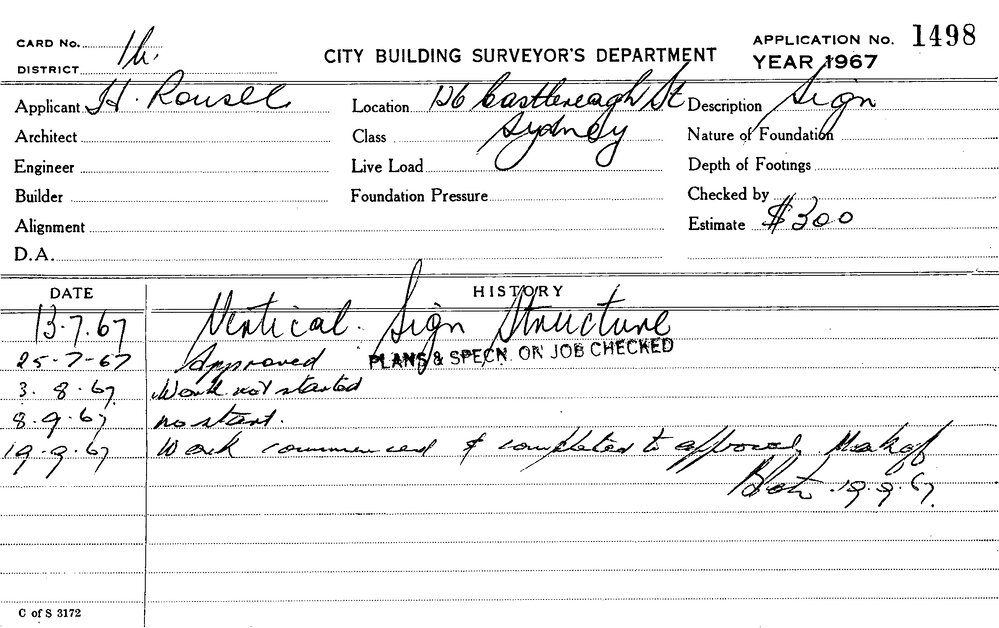 CARD No. 1h.
DISTRICT
CITY BUILDING SURVEYOR'S DEPARTMENT
APPLICATION No. 1498
YEAR 1967
Applicant H. Rousel Location 126 Castlereagh St Description Sign
Architect Class Sydney Nature of Foundation
Engineer Live Load Depth of Footings
Builder Foundation Pressure Checked by
Alignment Estimate $300
D.A.
DATE HISTORY
13.7.67 Vertical Sign Structure
25-7-67 Approved PLANS & SPECN. ON JOB CHECKED
3.8.67 Work not started
8.9.67 no start.
19.9.67 Work commenced & completed to approval
19.9.67
C of S 3172